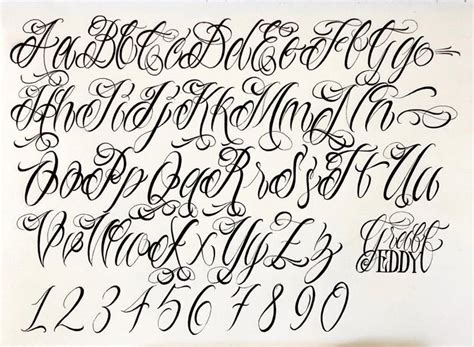 Aa Bb Cc Dd Ee Ff Gg
Hh Ii Jj Kk Mm Ll Nn
Oo Pp Qq Rr Ss Tt Uu
Vv Ww Xx Yy Zz
EDDY
1 2 3 4 5 6 7 8 9 0